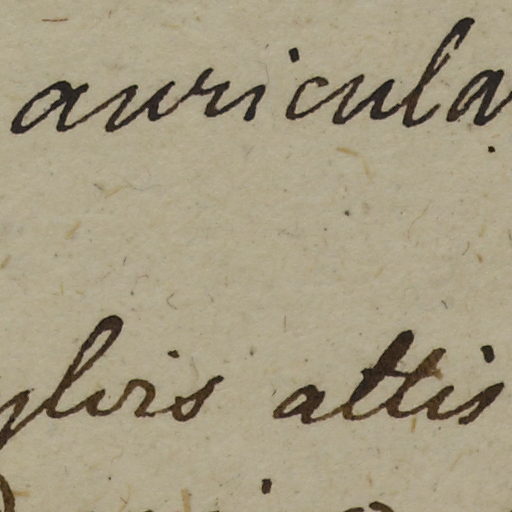 auricula
ylvis altis